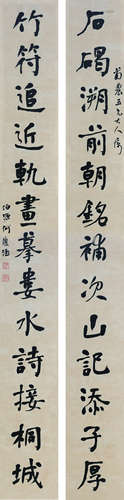 石碣溯前朝銘補次山記添子厚
菊農五兄大人屬
竹符追近軌畫摹婁水詩接桐城
伯源何慶涵